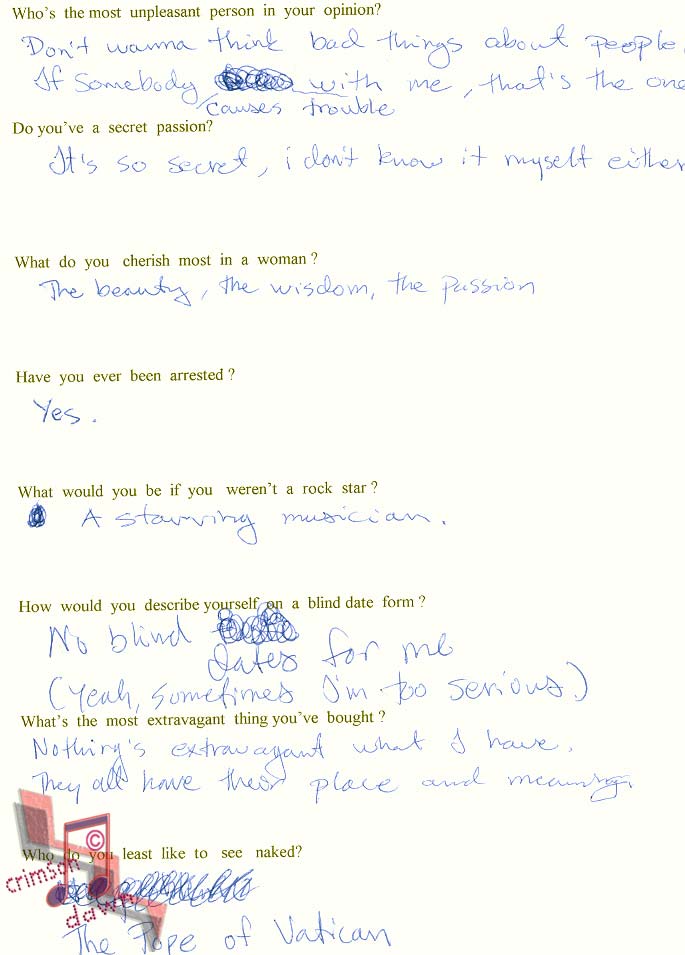 Who's the most unpleasant person in your opinion?
Don't wanna think bad things about people.
If somebody with me, that's the one
causes trouble
Do you've a secret passion?
It's so secret, i don't know it myself either
What do you cherish most in a woman?
The beauty, the wisdom, the passion
Have you ever been arrested?
Yes.
What would you be if you weren't a rock star?
A starving musician.
How would you describe yourself on a blind date form?
No blind
dates for me
(Yeah, sometimes I'm too serious.)
What's the most extravagant thing you've bought?
Nothing's extravagant what I have.
They all have their place and meaning.
Who do you least like to see naked?
©
crimson
dawn
The Pope of Vatican